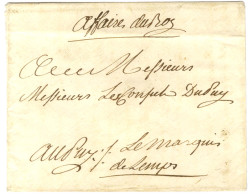 Affaires du Roy
A Messieurs
Messieurs Les Consuls Du Puy
Au Puy ./. Le Marquis
de Lemps